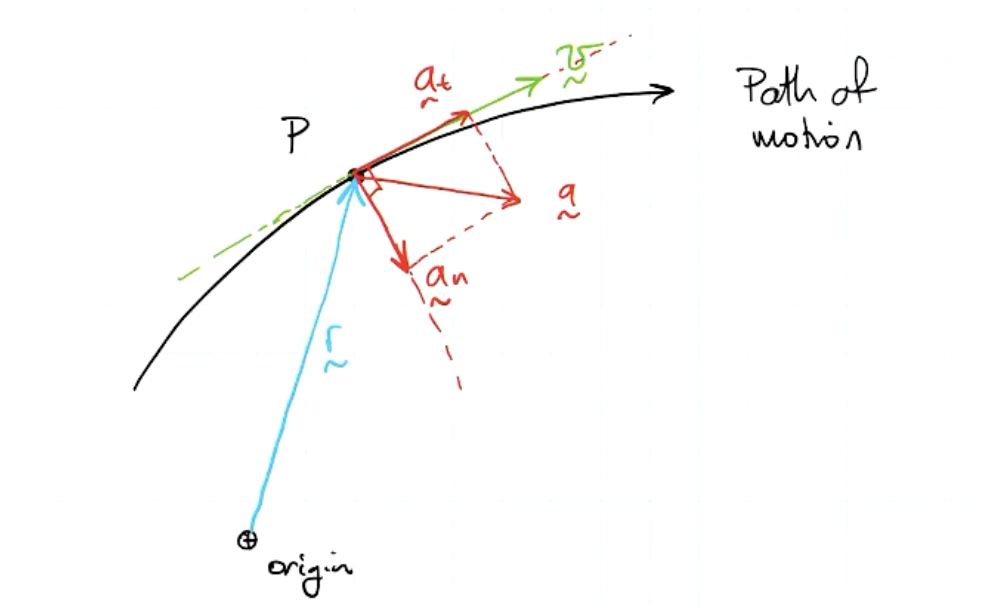 v
a_t
Path of
motion
P
a
a_n
r
origin